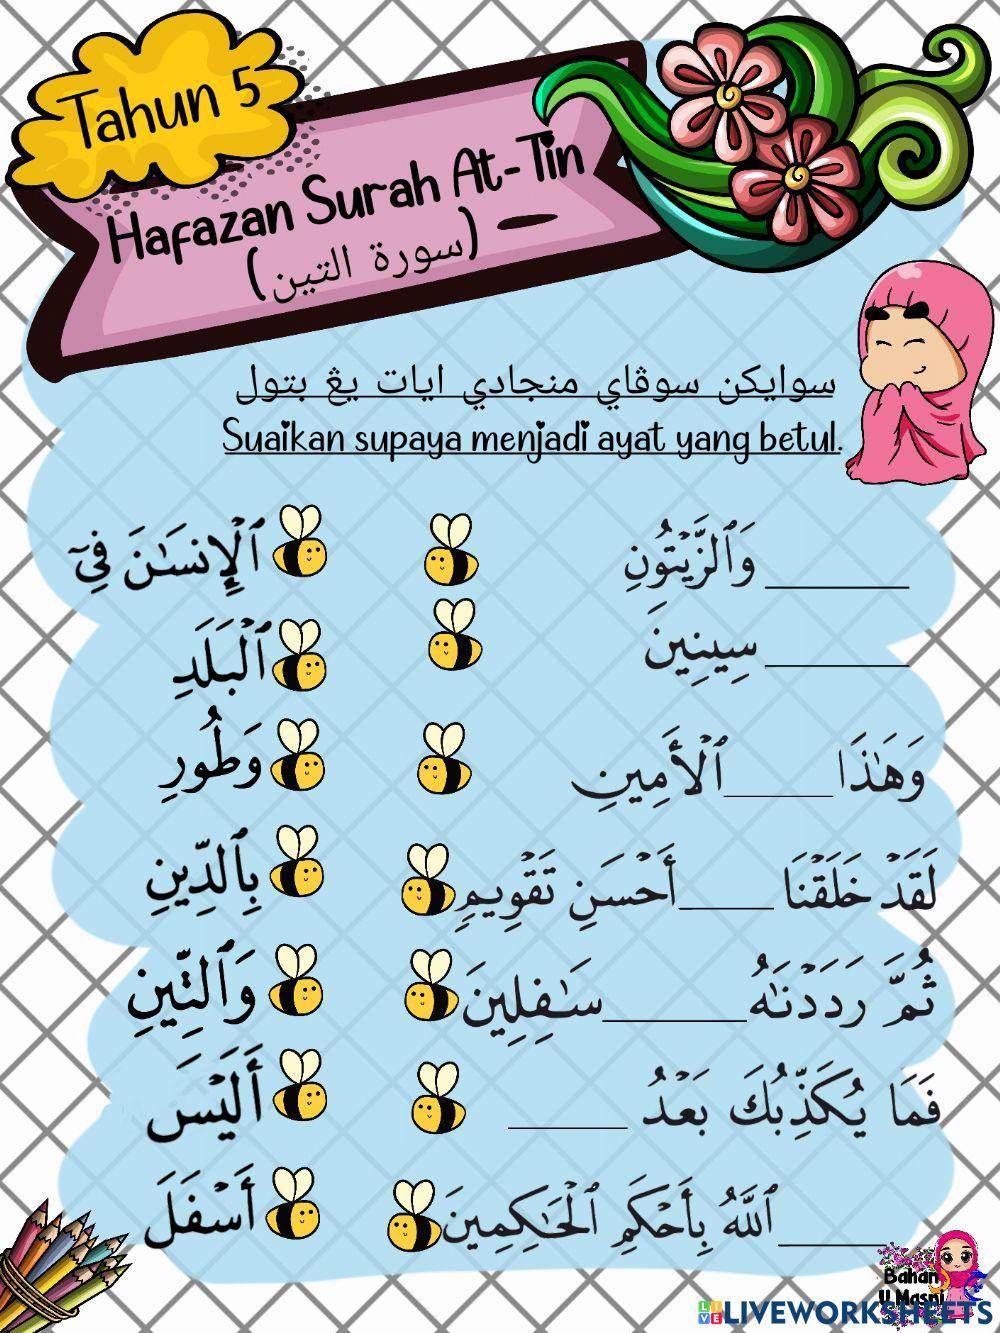 Tahun 5
Hafazan Surah At-Tin
(سورة التين)
سوايكن سوڤاي منجادي ايات يڠ بتول
Suaikan supaya menjadi ayat yang betul.
______ وَٱلزَّيۡتُونِ
ٱلۡإِنسَٰنَ فِيٓ
______ سِينِينَ
ٱلۡبَلَدِ
وَهَٰذَا _____ ٱلۡأَمِينِ
وَطُورِ
لَقَدۡ خَلَقۡنَا ____ أَحۡسَنِ تَقۡوِيمٖ
بِٱلدِّينِ
ثُمَّ رَدَدۡنَٰهُ ______ سَٰفِلِينَ
وَٱلتِّينِ
فَمَا يُكَذِّبُكَ بَعۡدُ _____
أَلَيۡسَ
_____ ٱللَّهُ بِأَحۡكَمِ ٱلۡحَٰكِمِينَ
أَسۡفَلَ
Bahan
U Masni
LIVE LIVEWORKSHEETS